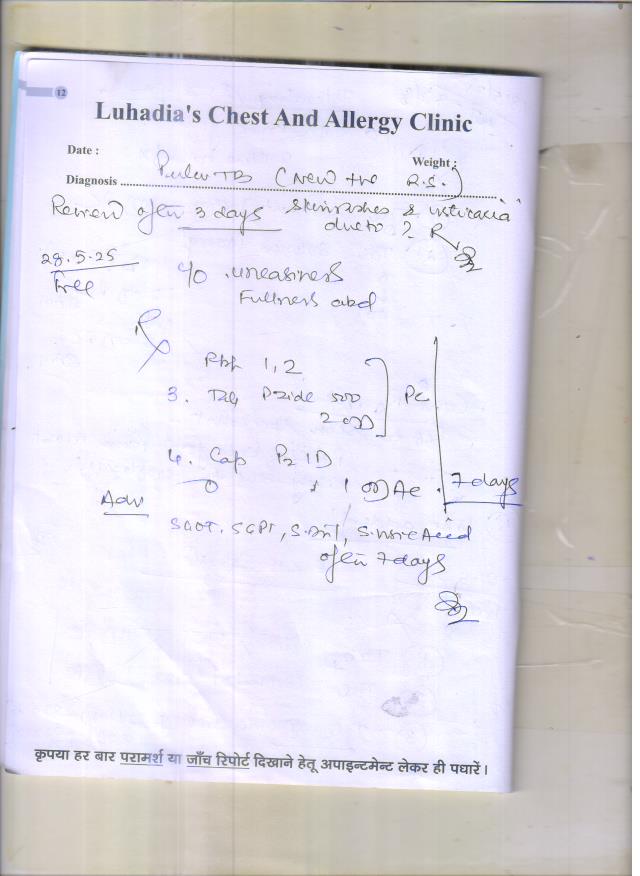 12
Luhadia's Chest And Allergy Clinic
Date :
Weight :
Diagnosis Pulm TB (New +ve R.S.)
Review after 3 days Skin rashes & urticaria
due to ? R
28.5.25
Free
c/o uneasiness
Fullness abd
Rx
1, 2
3. Tab Pzide 500
2 OD
PC
4. Cap Pz ID
1 OD AC
7 days
Adv
SGOT, SGPT, S. Bil, S. Uric Acid
after 7 days
कृपया हर बार परामर्श या जाँच रिपोर्ट दिखाने हेतू अपाइन्टमेन्ट लेकर ही पधारें।